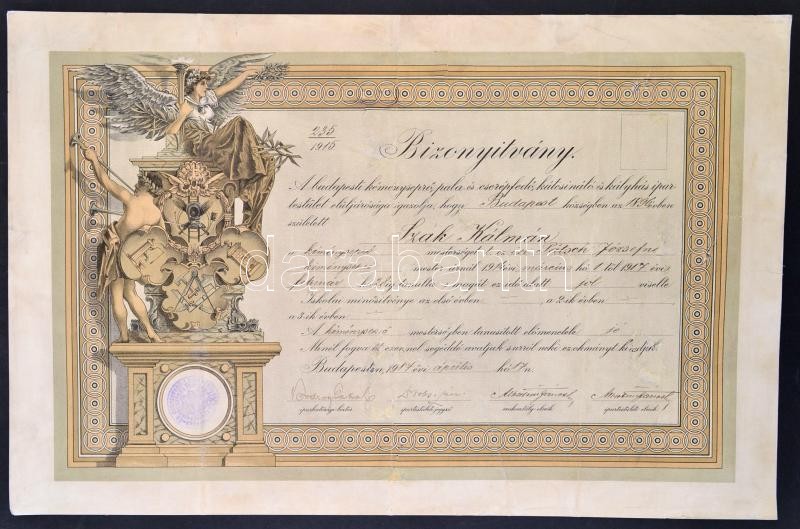 235
1915
Bizonyitvány.
A budapesti kéményseprő, pala és cserépfedő, kutcsináló és kályhás ipar
testület elöljárósága igazolja, hogy Budapest községben az 1896 évben
született
Szak Kálmán
kéményseprő mesterséget
kéményseprő mester úrnál 1914 évi március hó 1 től 1917 évi
február magát ez idő alatt jól viselte
Iskolai minősitvénye az első évben a 2-ik évben
a 3-ik évben
A kéményseprő mesterségben tanusitott előmenetele jó
Minél fogva őt ezennel segéddé avatjuk s arról neki ez okmányt kiadjuk.
Budapesten, 1917 évi április hó 17 n.
iparhatósági biztos ipartestületi jegyző szakosztály elnök ipartestületi elnök
databamp